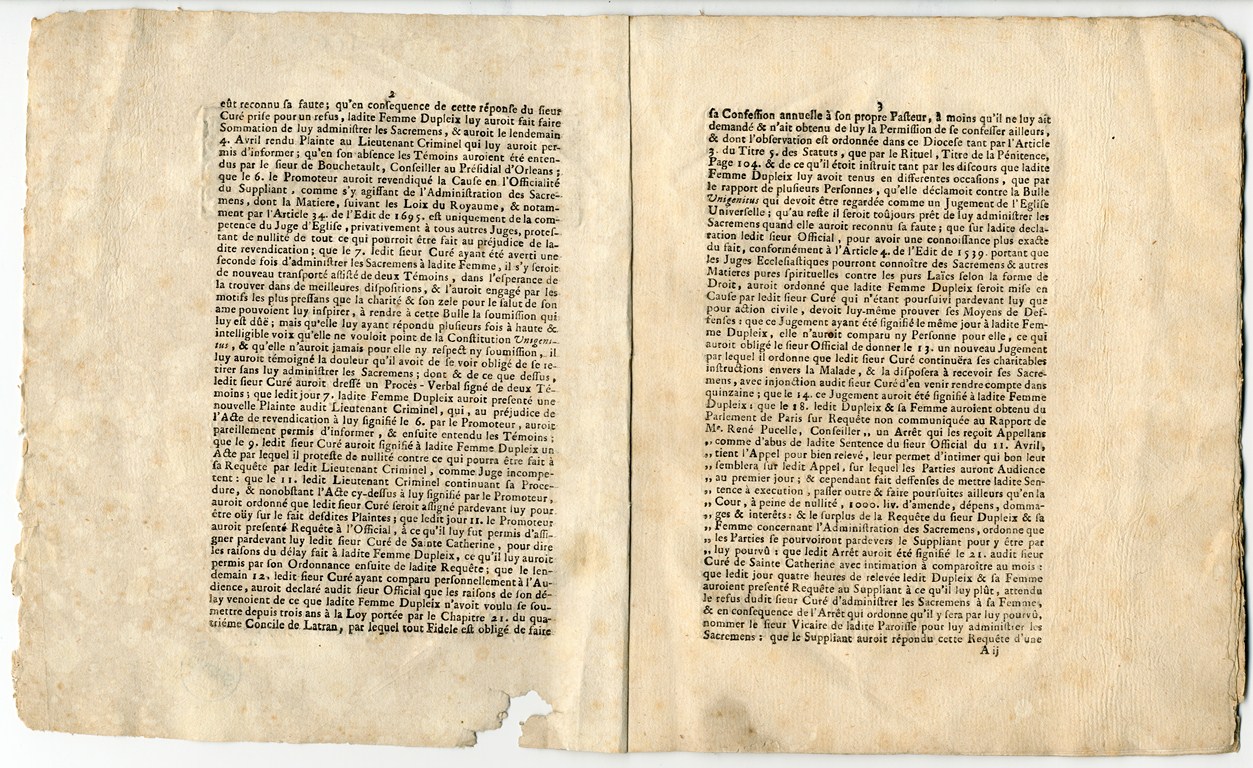 2
eût reconnu sa faute; qu'en consequence de cette réponse du sieur
Curé prise pour un refus, ladite Femme Dupleix luy auroit fait faire
Sommation de luy administrer les Sacremens, & auroit le lendemain
4. Avril rendu Plainte au Lieutenant Criminel qui luy auroit per-
mis d'informer; qu'en son absence les Témoins auroient été enten-
dus par le sieur de Bouchetault, Conseiller au Présidial d'Orleans;
que le 6. le Promoteur auroit revendiqué la Cause en l'Officialité
du Suppliant, comme s'y agissant de l'Administration des Sacre-
mens, dont la Matiere, suivant les Loix du Royaume, & notam-
ment par l'Article 34. de l'Edit de 1695. est uniquement de la com-
petence du Juge d'Eglise, privativement à tous autres Juges, protes-
tant de nullité de tout ce qui pourroit être fait au préjudice de la-
dite revendication; que le 7. ledit sieur Curé ayant été averti une
seconde fois d'administrer les Sacremens à ladite Femme, il s'y seroit
de nouveau transporté assisté de deux Témoins, dans l'esperance de
la trouver dans de meilleures dispositions, & l'auroit engagé par les
motifs les plus pressans que la charité & son zele pour le salut de son
ame pouvoient luy inspirer, à rendre à cette Bulle la soumission qui
luy est dûë; mais qu'elle luy ayant répondu plusieurs fois à haute &
intelligible voix qu'elle ne vouloit point de la Constitution Unigeni-
tus, & qu'elle n'auroit jamais pour elle ny respect ny soumission, il
luy auroit témoigné la douleur qu'il avoit de se voir obligé de se re-
tirer sans luy administrer les Sacremens; dont & de ce que dessus,
ledit sieur Curé auroit dressé un Procès-Verbal signé de deux Té-
moins; que ledit jour 7. ladite Femme Dupleix auroit presenté une
nouvelle Plainte audit Lieutenant Criminel, qui, au préjudice de
l'Acte de revendication à luy signifié le 6. par le Promoteur, auroit
pareillement permis d'informer, & ensuite entendu les Témoins;
que le 9. ledit sieur Curé auroit signifié à ladite Femme Dupleix un
Acte par lequel il proteste de nullité contre ce qui pourra être fait à
sa Requête par ledit Lieutenant Criminel, comme Juge incompe-
tent: que le 11. ledit Lieutenant Criminel continuant sa Proce-
dure, & nonobstant l'Acte cy-dessus à luy signifié par le Promoteur,
auroit ordonné que ledit sieur Curé seroit assigné pardevant luy pour
être oüy sur le fait desdites Plaintes; que ledit jour 11. le Promoteur
auroit presenté Requête à l'Official, à ce qu'il luy fut permis d'assi-
gner pardevant luy ledit sieur Curé de Sainte Catherine, pour dire
les raisons du délay fait à ladite Femme Dupleix, ce qu'il luy auroit
permis par son Ordonnance ensuite de ladite Requête; que le len-
demain 12. ledit sieur Curé ayant comparu personnellement à l'Au-
dience, auroit declaré audit sieur Official que les raisons de son dé-
lay venoient de ce que ladite Femme Dupleix n'avoit voulu se sou-
mettre depuis trois ans à la Loy portée par le Chapitre 21. du qua-
triéme Concile de Latran, par lequel tout Fidele est obligé de faire
3
sa Confession annuelle à son propre Pasteur, à moins qu'il ne luy ait
demandé & n'ait obtenu de luy la Permission de se confesser ailleurs,
& dont l'observation est ordonnée dans ce Diocese tant par l'Article
3. du Titre 5. des Statuts, que par le Rituel, Titre de la Pénitence,
Page 104. & de ce qu'il étoit instruit tant par les discours que ladite
Femme Dupleix luy avoit tenus en differentes occasions, que par
le rapport de plusieurs Personnes, qu'elle déclamoit contre la Bulle
Unigenitus qui devoit être regardée comme un Jugement de l'Eglise
Universelle; qu'au reste il seroit toûjours prêt de luy administrer les
Sacremens quand elle auroit reconnu sa faute; que sur ladite decla-
ration ledit sieur Official, pour avoir une connoissance plus exacte
du fait, conformément à l'Article 4. de l'Edit de 1539. portant que
les Juges Ecclesiastiques pourront connoître des Sacremens & autres
Matieres pures spirituelles contre les purs Laïcs selon la forme de
Droit, auroit ordonné que ladite Femme Dupleix seroit mise en
Cause par ledit sieur Curé qui n'étant poursuivi pardevant luy que
pour action civile, devoit luy-même prouver ses Moyens de Def-
fenses: que ce Jugement ayant été signifié le même jour à ladite Fem-
me Dupleix, elle n'auroit comparu ny Personne pour elle, ce qui
auroit obligé le sieur Official de donner le 13. un nouveau Jugement
par lequel il ordonne que ledit sieur Curé continuëra ses charitables
instructions envers la Malade, & la disposera à recevoir ses Sacre-
mens, avec injonction audit sieur Curé d'en venir rendre compte dans
quinzaine; que le 14. ce Jugement auroit été signifié à ladite Femme
Dupleix: que le 18. ledit Dupleix & sa Femme auroient obtenu du
Parlement de Paris sur Requête non communiquée au Rapport de
Me. René Pucelle, Conseiller,, un Arrêt qui les reçoit Appellans
,, comme d'abus de ladite Sentence du sieur Official du 11. Avril,
,, tient l'Appel pour bien relevé, leur permet d'intimer qui bon leur
,, semblera sur ledit Appel, sur lequel les Parties auront Audience
,, au premier jour; & cependant fait deffenses de mettre ladite Sen-
,, tence à execution, passer outre & faire poursuites ailleurs qu'en la
,, Cour, à peine de nullité, 1000. liv. d'amende, dépens, domma-
,, ges & interêts: & le surplus de la Requête du sieur Dupleix & sa
,, Femme concernant l'Administration des Sacremens, ordonne que
,, les Parties se pourvoiront pardevers le Suppliant pour y être par
,, luy pourvû: que ledit Arrêt auroit été signifié le 21. audit sieur
Curé de Sainte Catherine avec intimation à comparoître au mois:
que ledit jour quatre heures de relevée ledit Dupleix & sa Femme
auroient presenté Requête au Suppliant à ce qu'il luy plût, attendu
le refus dudit sieur Curé d'administrer les Sacremens à sa Femme,
& en consequence de l'Arrêt qui ordonne qu'il y sera par luy pourvû,
nommer le sieur Vicaire de ladite Paroisse pour luy administrer les
Sacremens: que le Suppliant auroit répondu cette Requête d'une
A ij